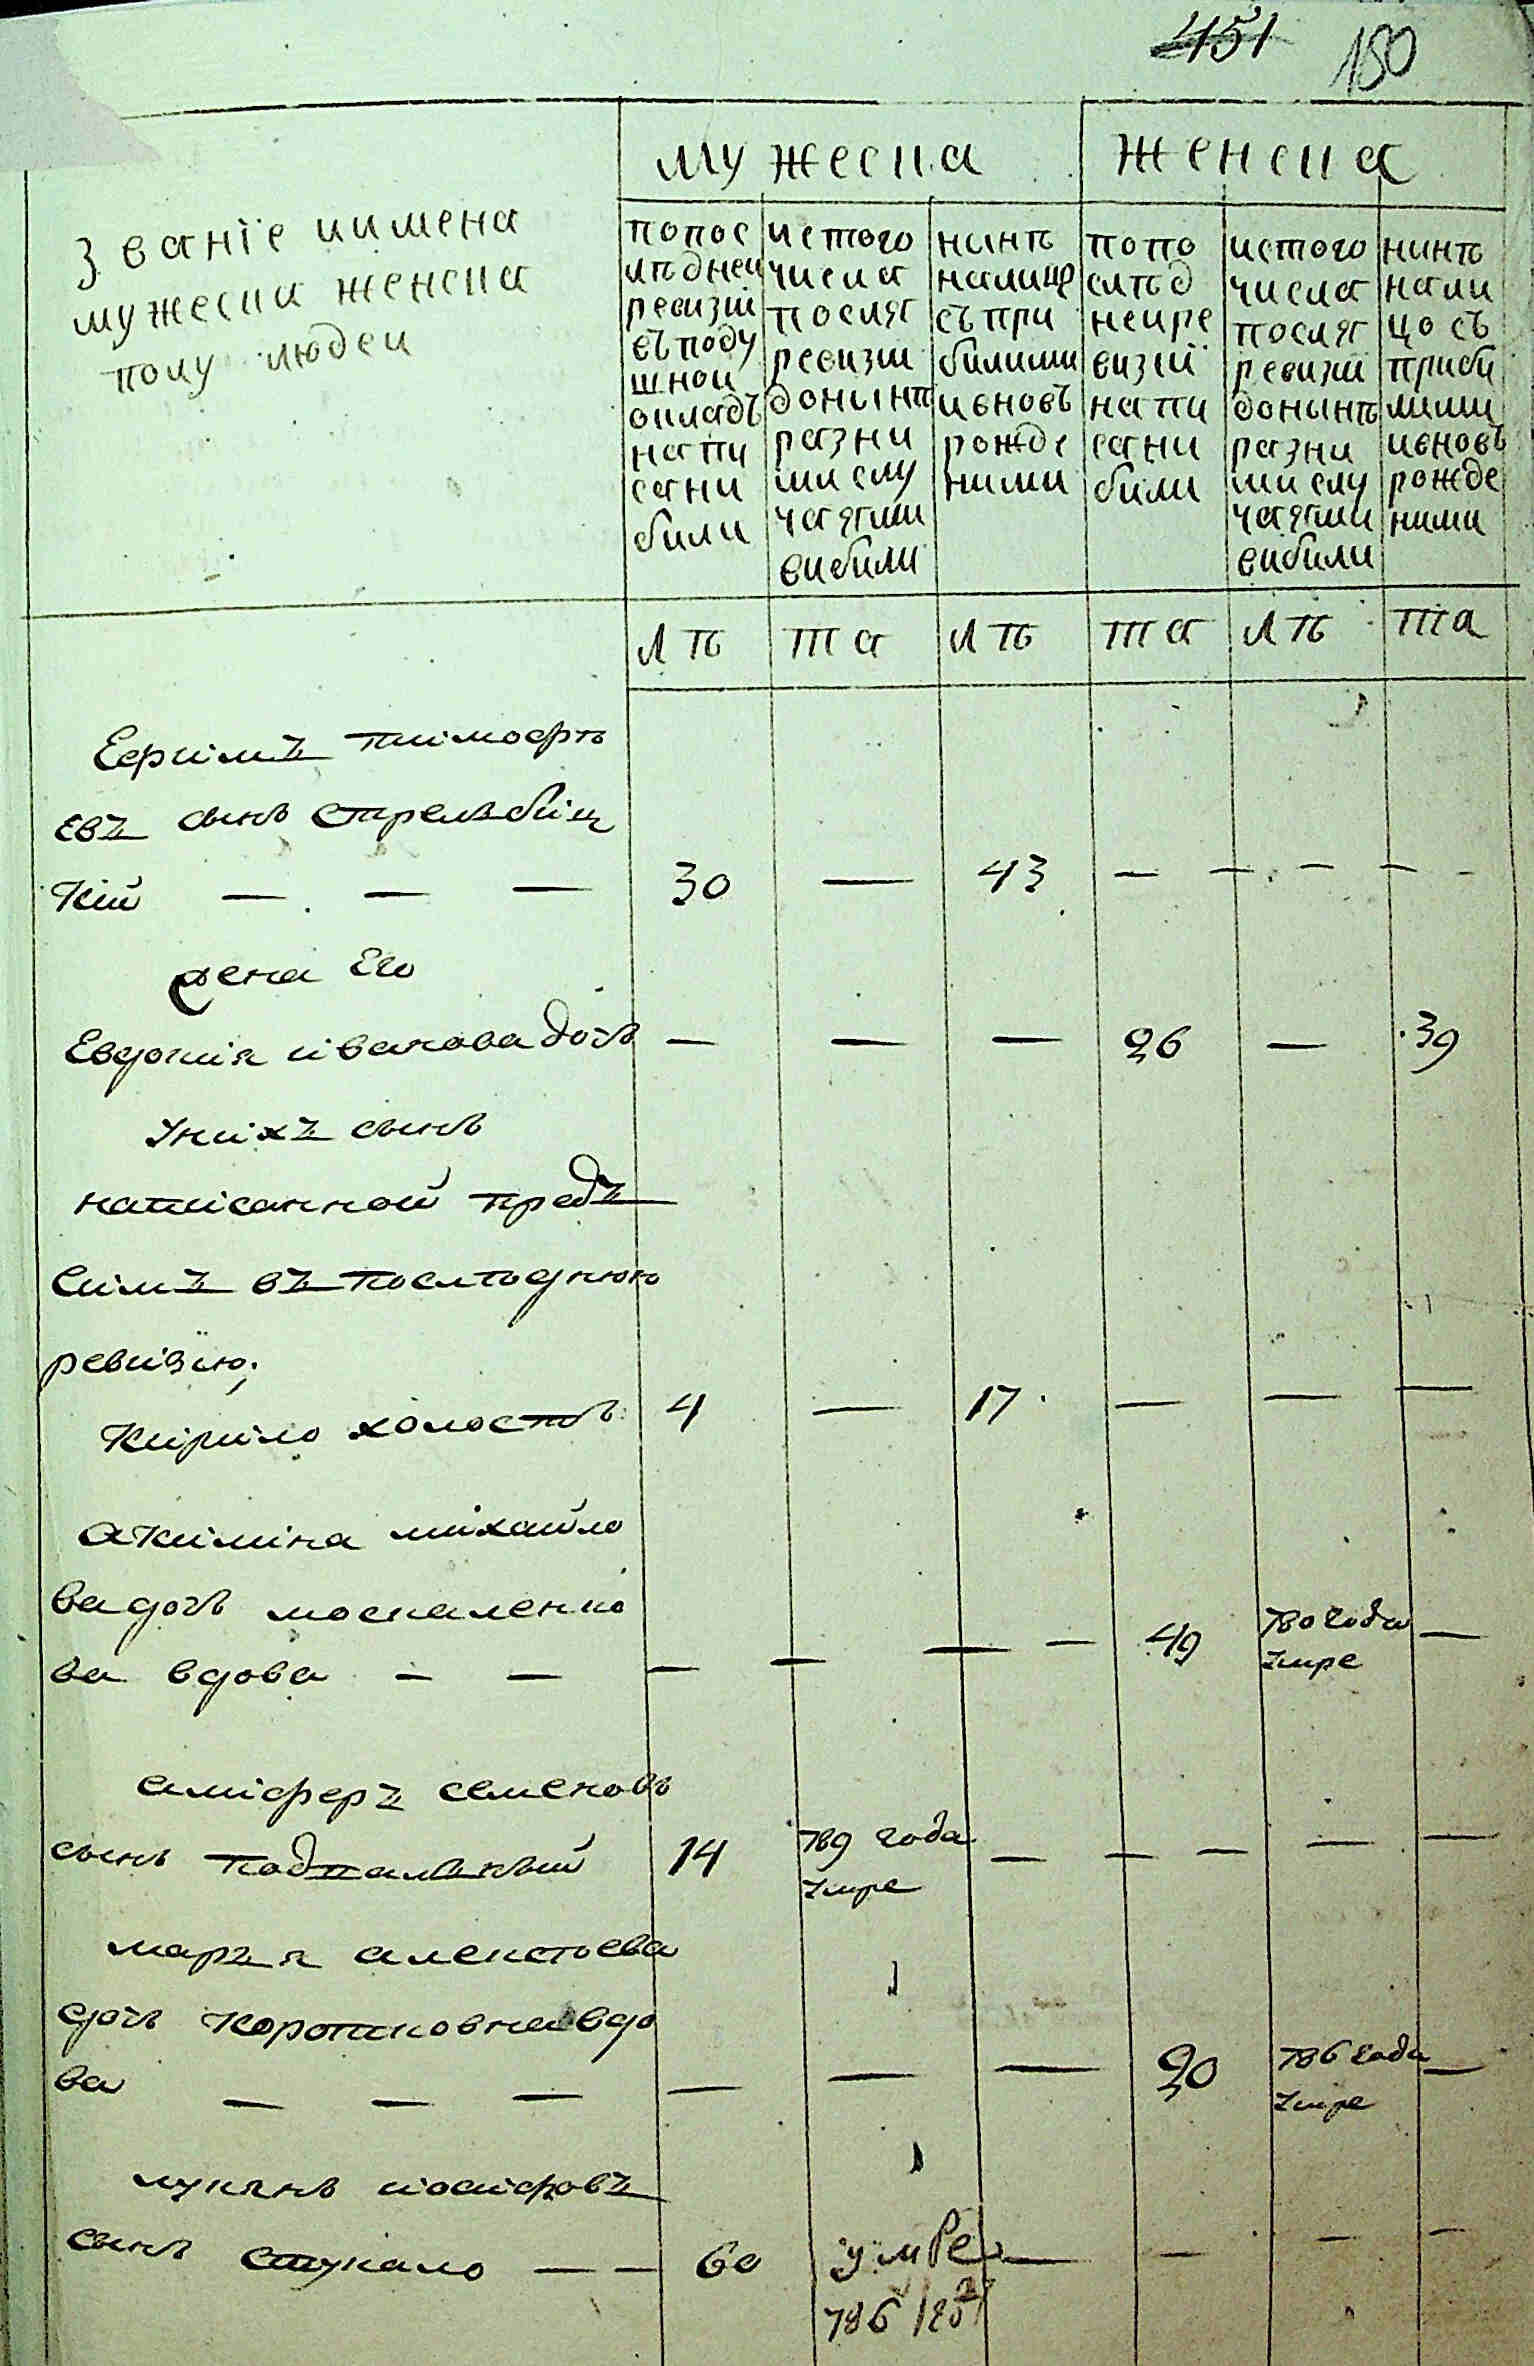 451 150
мужеска женска
званїе иимена
мужеска женска
полу людеи
попос
лѣднеи
ревизїи
въподу
шнои
окладъ
напи
сани
били
истого
числа
посляг
ревизїи
донынѣ
разни
ми слу
чаями
вибили
нинѣ
налицо
съпри
билими
ивновъ
рожде
ними
попо
слѣд
неире
визїи
напи
сани
били
истого
числа
посляг
ревизїи
донынѣ
разни
ми слу
чаями
вибили
нинѣ
нали
цо съ
приби
лими
ивновъ
рожде
ними
лѣ та лѣ та лѣ та
Ефимъ тимофѣ
евъ сынъ стрельбиц
кїй — — — 30 — 43 — — — — —
жена Его
Евдокия иванова дочь — — — 26 — 39
Унихъ сынъ
написанной предъ
симъ въ последнюю
ревизїю;
Кирило холостъ 4 — 17 — — —
Акилина михайло
ва дочь москаленко
ва вдова — — — — — — 49 780 года —
умре
алиферъ семеновъ
сынъ подпалький 14 789 года — — — — —
умре
маръя алексѣева
дочь коротковна вдо
ва — — — — — — 20 786 года —
умре
лукянъ иосифовъ
сынъ стукало — — 60 умре — — — —
786 год